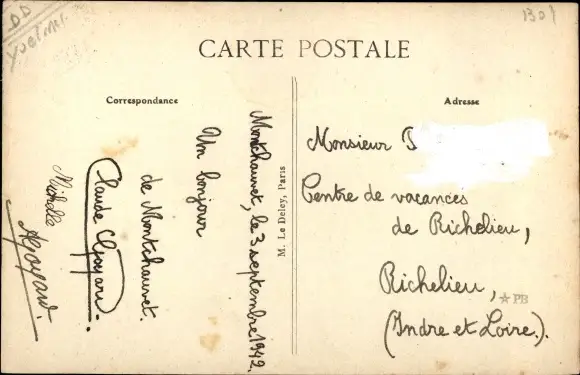 DD
1301
CARTE POSTALE
Correspondance
Adresse
Montchauvet, le 3 septembre 1942.
Un bonjour
de Montchauvet.
Claude
Michelle
M. Le Deley, Paris
Monsieur
Centre de vacances
de Richelieu,
Richelieu,
(Indre et Loire).
PB